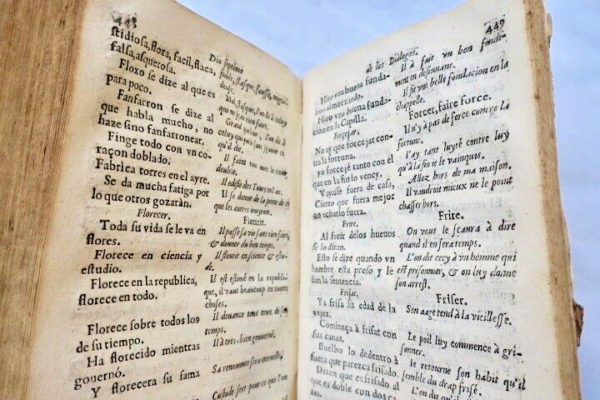 448
stidiosa, flora, facil, flaca,
falsa, asquerosa.
Floxo se dize al que es
para poco.
Fanfarron se dize al
que habla mucho, no
haze sino fanfarronear.
Finge todo con vn co-
raçon doblado.
Fabrica torres en el ayre.
Se da mucha fatiga por
lo que otros gozaràn.
Florecer.
Toda su vida se le va en
flores.
Florece en ciencia y
estudio.
Florece en la republica,
florece en todo.
Florece sobre todos los
de su tiempo.
Ha florecido mientras
gouernó.
Y florecera su fama
qu'il dit.
Il faict tout avec vn cœur
double.
Il edifie des Tours en l'air.
Il se donne de la peine de ce
que les autres iouyront.
Fleurir.
Il passe sa vie sans rien faire,
& donner du bon temps.
Il fleurit en science & estu-
de.
Il est estimé en la republi-
que, il vaut beaucoup en toutes
choses.
Il deuance tous ceux de son
temps.
Il a tres-bien gouuerné.
Sa renommée sera eternelle.
449
de los Dialogos.
Hizo vna buena funda-
Hizo vna buena funda-
cion en la Capilla.
Forçejar.
No ay que forcejar con-
tra la fortuna.
yo forcejè tanto con el
que en la fin lo venci.
Vayasse fuera de casa,
Cierto que fuera mejor
no echarlo fuera.
Freir.
Al freir de los hueuos
se lo diran.
Esto se dize quando vn
hombre esta preso y le
dan la sentencia.
Frisar.
Ya frisa su edad de la
vejez.
Començà à frisar con
sus canas.
Buelbo lo de dentro à
fuera que parezca frisado.
Dizen que es frisado al
que es doble con dos
Il à fait vn bon fonde-
ment en desieunant.
Il fit vne belle fundacion en la
chappelle.
Forcer, faire force.
Il n'y à pas de force contre la
fortune.
I'ay tant luyté contre luy
qu'à la fin ie le vainquis.
Allez hors de ma maison.
Il vaudroit mieux ne le point
chasser hors.
Frire.
On vous le sçaura à dire
quand il en sera temps.
L'on dit cecy à vn homme qui
est prisonnier, & on luy donne
son arrest.
Friser.
Son aage tend à la vieillesse.
Le poil luy commence à gri-
sonner.
Ie retourne son habit qu'il
semble du drap frisé.